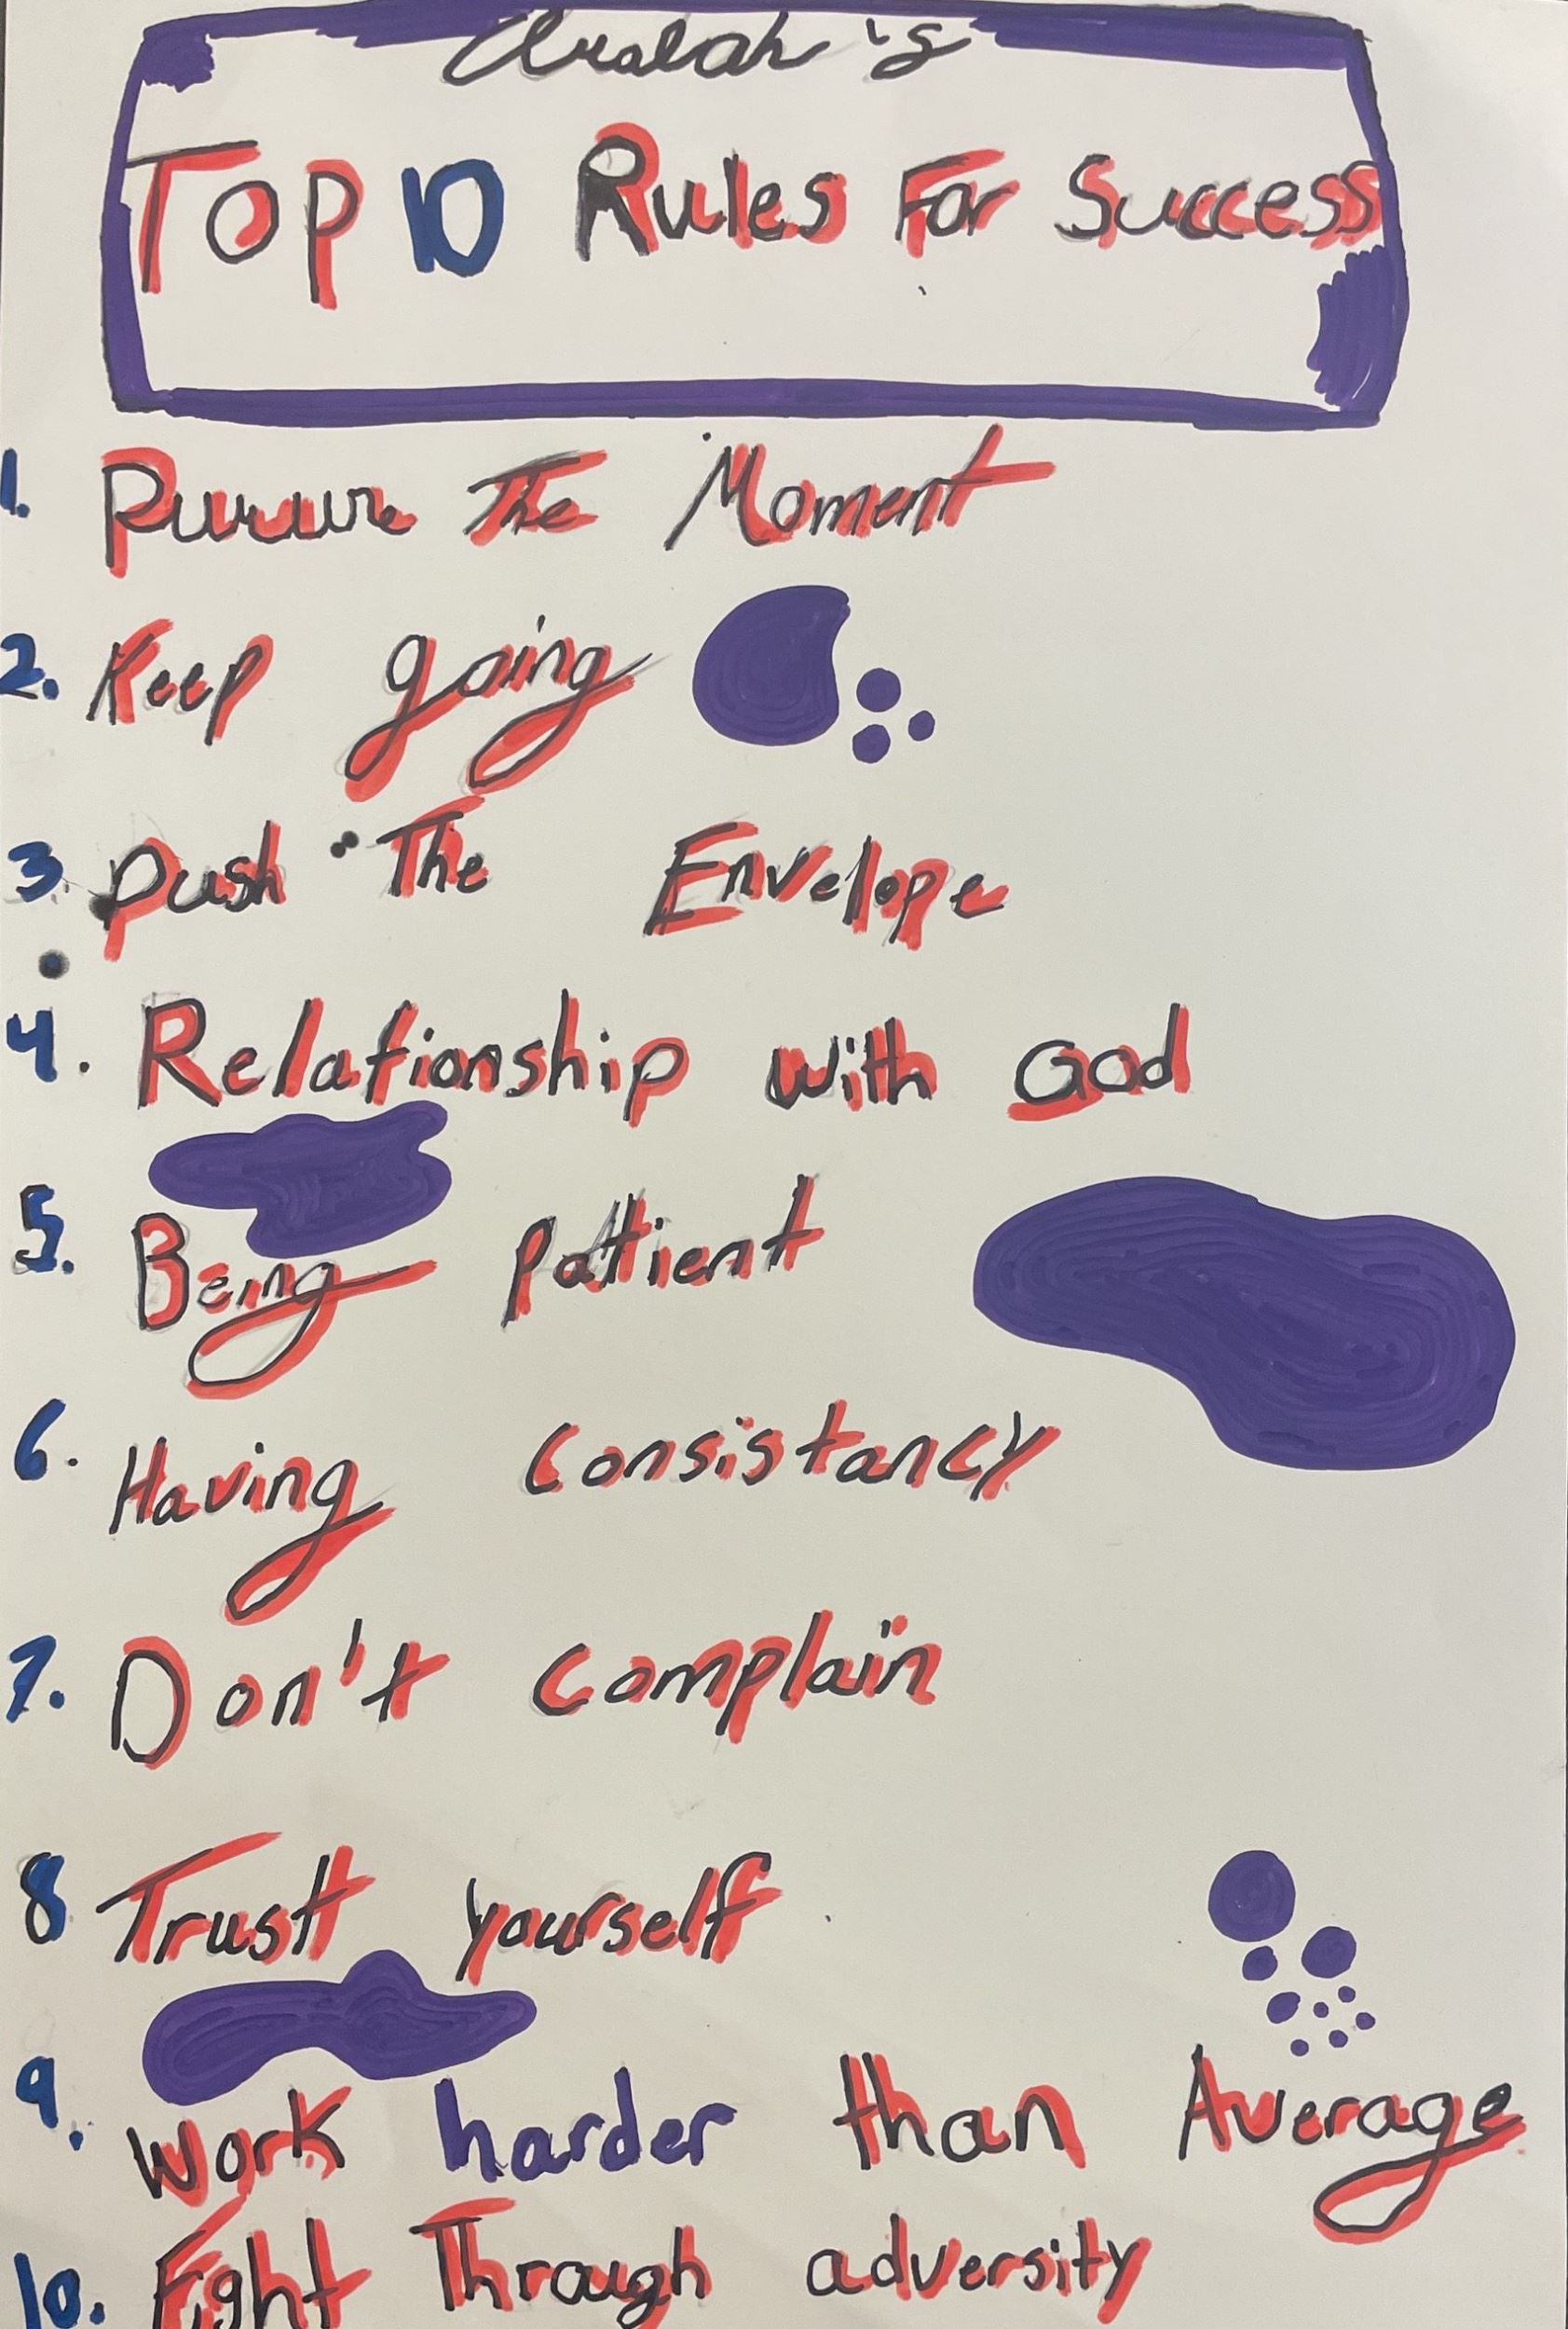 Top 10 Rules For Success
1. The Moment
2. Keep going
3. Push The Envelope
4. Relationship with God
5. Being patient
6. Having consistancy
7. Don't complain
8 Trust yourself
9. Work harder than Average
10. Fight Through adversity